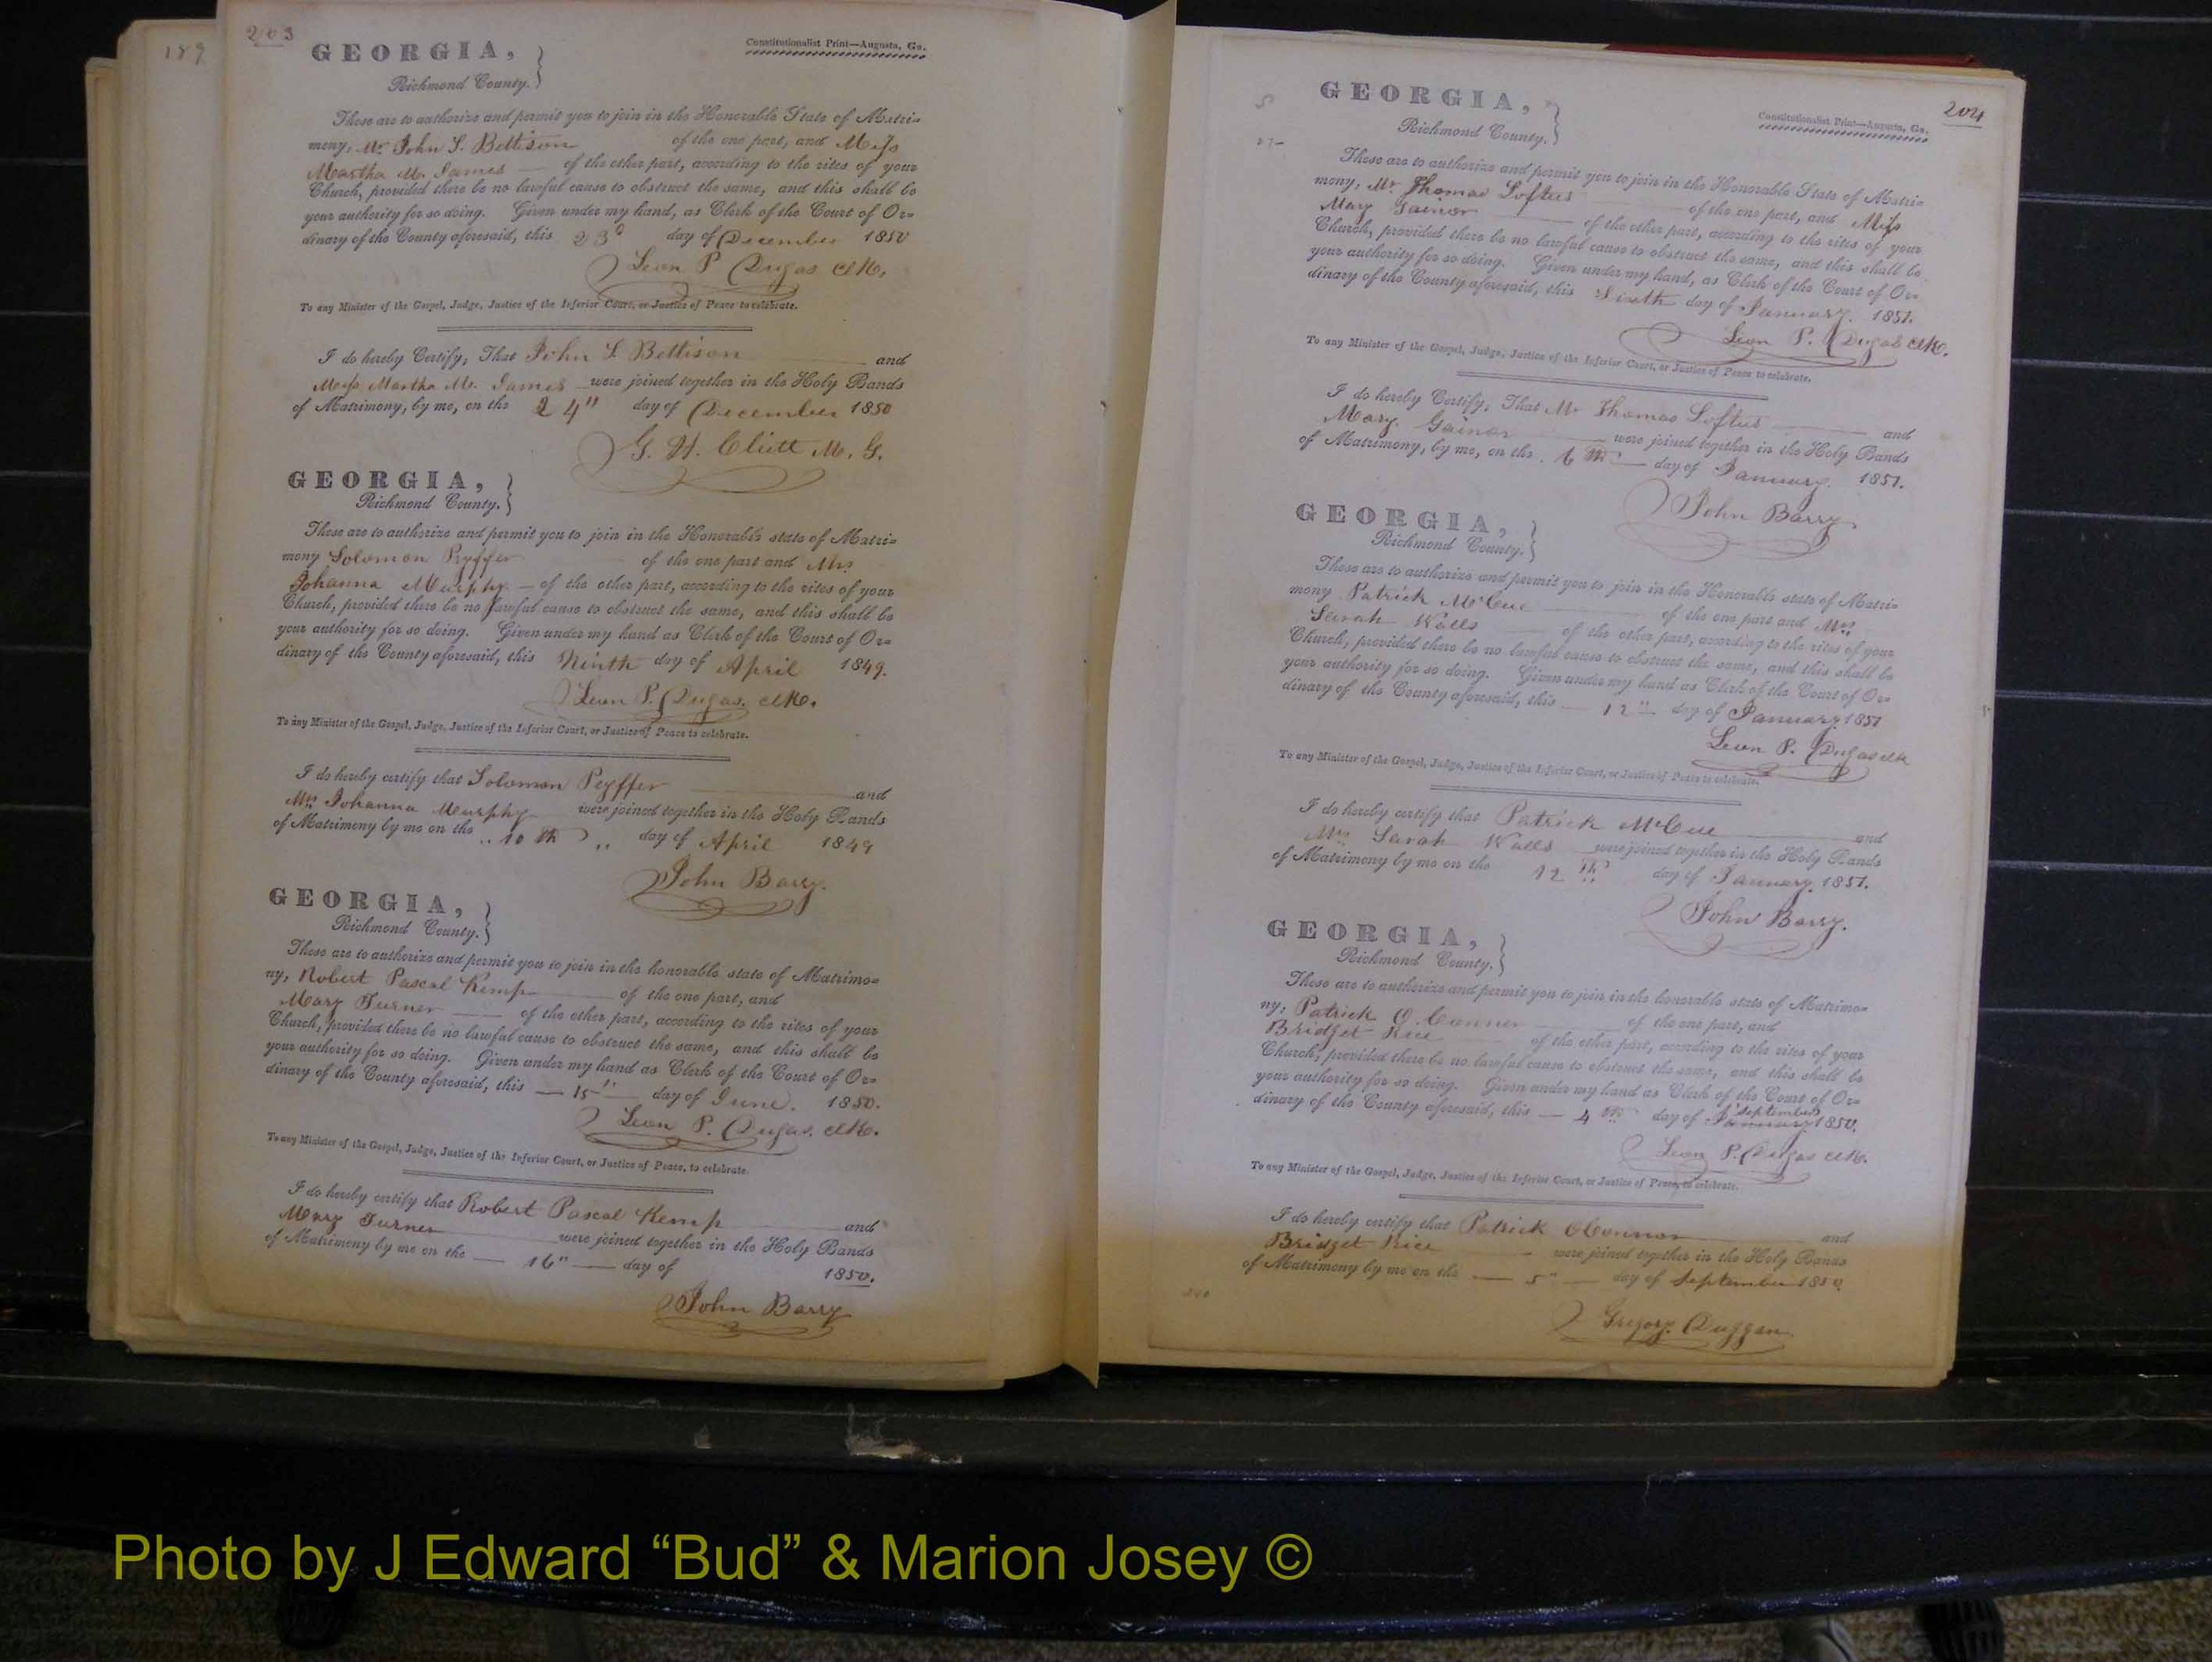 189
203
Constitutionalist Print—Augusta, Ga.
GEORGIA,
Richmond County.
These are to authorize and permit you to join in the Honorable State of Matri-
mony, Mr John S. Bettison of the one part, and Miss
Martha M. James of the other part, according to the rites of your
Church, provided there be no lawful cause to obstruct the same, and this shall be
your authority for so doing. Given under my hand, as Clerk of the Court of Or-
dinary of the County aforesaid, this 23d day of December 1850
Leon P Dugas Clk.
To any Minister of the Gospel, Judge, Justice of the Inferior Court, or Justice of Peace to celebrate.
I do hereby Certify, That John S. Bettison and
Miss Martha M. James were joined together in the Holy Bands
of Matrimony, by me, on the 24" day of December 1850
G. H. Cliett M. G.
GEORGIA,
Richmond County.
These are to authorize and permit you to join in the Honorable state of Matri-
mony Solomon Peyffer of the one part and Mrs
Johanna Murphy of the other part, according to the rites of your
Church, provided there be no lawful cause to obstruct the same, and this shall be
your authority for so doing. Given under my hand as Clerk of the Court of Or-
dinary of the County aforesaid, this Ninth day of April 1849.
Leon P. Dugas. Clk.
To any Minister of the Gospel, Judge, Justice of the Inferior Court, or Justice of Peace to celebrate.
I do hereby certify that Solomon Peyffer and
Mrs Johanna Murphy were joined together in the Holy Bands
of Matrimony by me on the 10th day of April 1849
John Barry.
GEORGIA,
Richmond County.
These are to authorize and permit you to join in the honorable state of Matrimo-
ny, Robert Pascal Kemp of the one part, and
Mary Turner of the other part, according to the rites of your
Church, provided there be no lawful cause to obstruct the same, and this shall be
your authority for so doing. Given under my hand as Clerk of the Court of Or-
dinary of the County aforesaid, this 15" day of June. 1850.
Leon P. Dugas. Clk.
To any Minister of the Gospel, Judge, Justice of the Inferior Court, or Justice of Peace, to celebrate.
I do hereby certify that Robert Pascal Kemp and
Mary Turner were joined together in the Holy Bands
of Matrimony by me on the 16" day of 1850.
John Barry
204
Constitutionalist Print—Augusta, Ga.
GEORGIA,
Richmond County.
These are to authorize and permit you to join in the Honorable State of Matri-
mony, Mr. Thomas Loftus of the one part, and Miss
Mary Gainor of the other part, according to the rites of your
Church, provided there be no lawful cause to obstruct the same, and this shall be
your authority for so doing. Given under my hand, as Clerk of the Court of Or-
dinary of the County aforesaid, this Sixth day of January. 1851.
Leon P. Dugas Clk.
To any Minister of the Gospel, Judge, Justice of the Inferior Court, or Justice of Peace to celebrate.
I do hereby Certify, That Mr Thomas Loftus and
Mary. Gainor were joined together in the Holy Bands
of Matrimony, by me, on the 6th day of January. 1851.
John Barry
GEORGIA,
Richmond County.
These are to authorize and permit you to join in the Honorable state of Matri-
mony Patrick McCue of the one part and Mrs
Sarah Walls of the other part, according to the rites of your
Church, provided there be no lawful cause to obstruct the same, and this shall be
your authority for so doing. Given under my hand as Clerk of the Court of Or-
dinary of the County aforesaid, this 12" day of January 1851
Leon P. Dugas Clk
To any Minister of the Gospel, Judge, Justice of the Inferior Court, or Justice of Peace to celebrate.
I do hereby certify that Patrick McCue and
Mrs Sarah Walls were joined together in the Holy Bands
of Matrimony by me on the 12th day of January. 1851.
John Barry.
GEORGIA,
Richmond County.
These are to authorize and permit you to join in the honorable state of Matrimo-
ny, Patrick O.Conner of the one part, and
Bridget Rice of the other part, according to the rites of your
Church, provided there be no lawful cause to obstruct the same, and this shall be
your authority for so doing. Given under my hand as Clerk of the Court of Or-
dinary of the County aforesaid, this 4th day of January September 1850.
Leon P. Dugas Clk.
To any Minister of the Gospel, Judge, Justice of the Inferior Court, or Justice of Peace, to celebrate.
I do hereby certify that Patrick OConnor and
Bridget Rice were joined together in the Holy Bands
of Matrimony by me on the 5" day of September 1850
Gregory. Duggan
Photo by J Edward “Bud” & Marion Josey ©